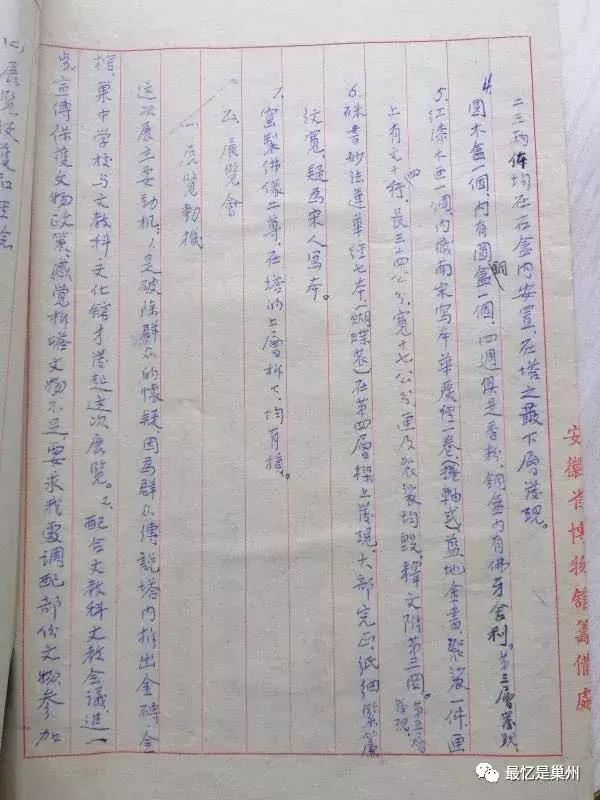 二三两件均在石盒内安置，在塔之最下層發现。
4.圆木盒一個，内有圆銅盒一個，四週俱是香粉，铜盒内有佛牙舍利。第三層發现，
5.红漆木匣一個，内藏南宋写本華嚴经一卷，捲軸式，蓝地金書，袈裟一件，匣
上有文十四行，長三十四公分，寬十七公分，匣及袈裟均毁，釋文附第三圖。第三層發现
6.硃書妙法蓮華经七本，蝴蝶装，在第四層樑上發现，大部完正，纸细緊簾
纹寬，疑為宋人寫本。
7.窑製佛像二尊，在塔的上層拆下，均有損。
乙、展覽會
（一）展覽動機
这次展主要动机：1.是破除群众的懷疑，因為群众傳說塔内拆出金磚，金
棺，巢中学校与文教科、文化舘才發起这次展览。2.配合文教科文教会議，進一
步宣傳保護文物政策，感觉拆塔文物不足，要求我處調配部份文物参加
（二）展覽
安徽省博物館籌備處
最忆是巢州